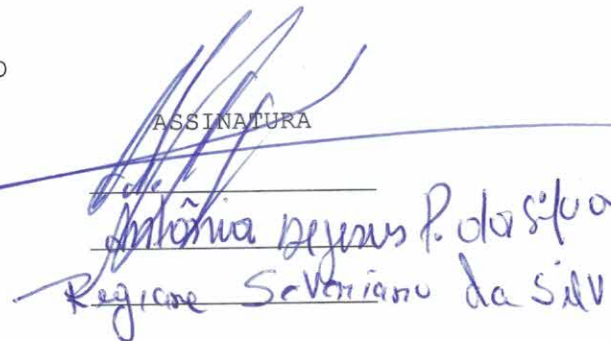 ASSINATURA
Antônia Dejesus P. da Silva
Regiane Severiano da Silv